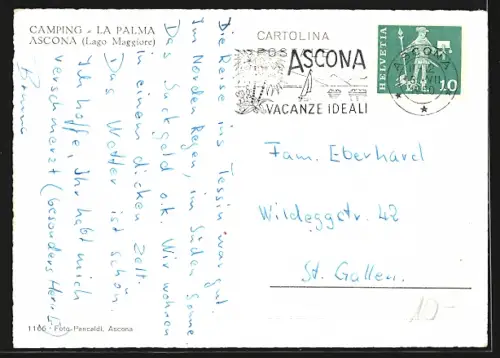 CAMPING - LA PALMA
ASCONA (Lago Maggiore)
Die Reise ins Tessin war gut.
Im Norden Regen, im Süden Sonne.
Das Sackgeld o.k. Wir wohnen
in einem dicken Zelt.
Das Wetter ist schön.
Ich hoffe, Ihr habt mich
verschmerzt (besonders Herr E.)
1166 - Foto Pancaldi, Ascona
CARTOLINA
POSTALE
ASCONA
VACANZE IDEALI
ASCONA
HELVETIA
10
Fam. Eberhard
Wildeggstr. 42
St. Gallen.
10-